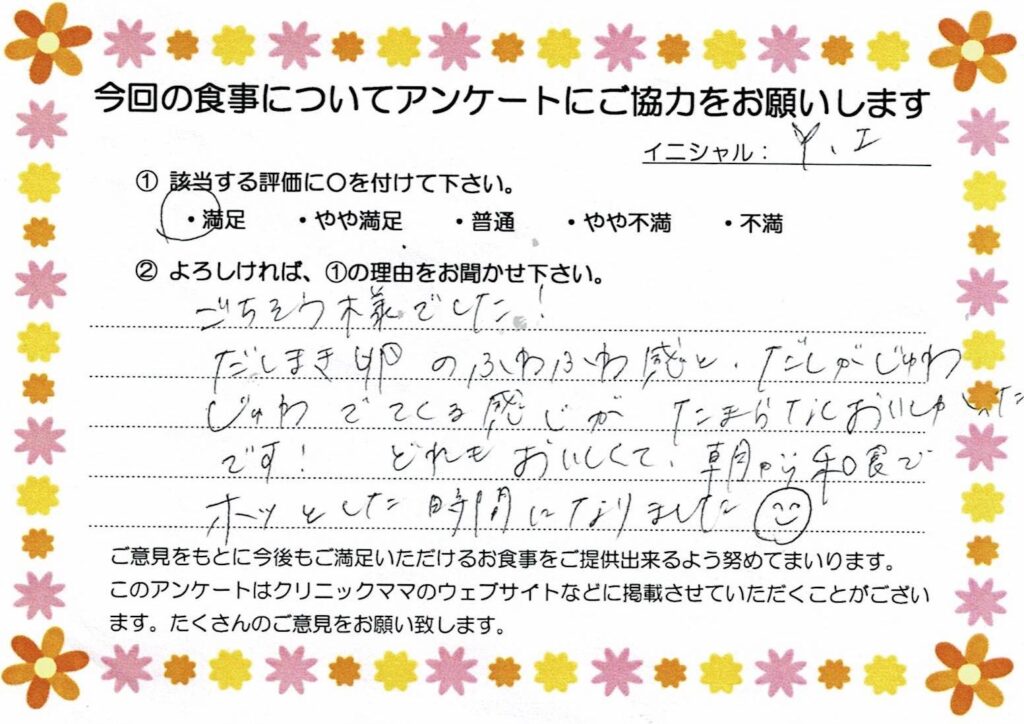 今回の食事についてアンケートにご協力をお願いします
イニシャル： Y、I
① 該当する評価に〇を付けて下さい。
・満足 ・やや満足 ・普通 ・やや不満 ・不満
② よろしければ、①の理由をお聞かせ下さい。
ごちそう様でした！
だしまき卵のふわふわ感と、だしがじゅわ
じゅわでてくる感じがたまらなくおいしかった
です！ どれもおいしくて、朝から和食で
ホッとした時間になりました
ご意見をもとに今後もご満足いただけるお食事をご提供出来るよう努めてまいります。
このアンケートはクリニックママのウェブサイトなどに掲載させていただくことがござい
ます。たくさんのご意見をお願い致します。